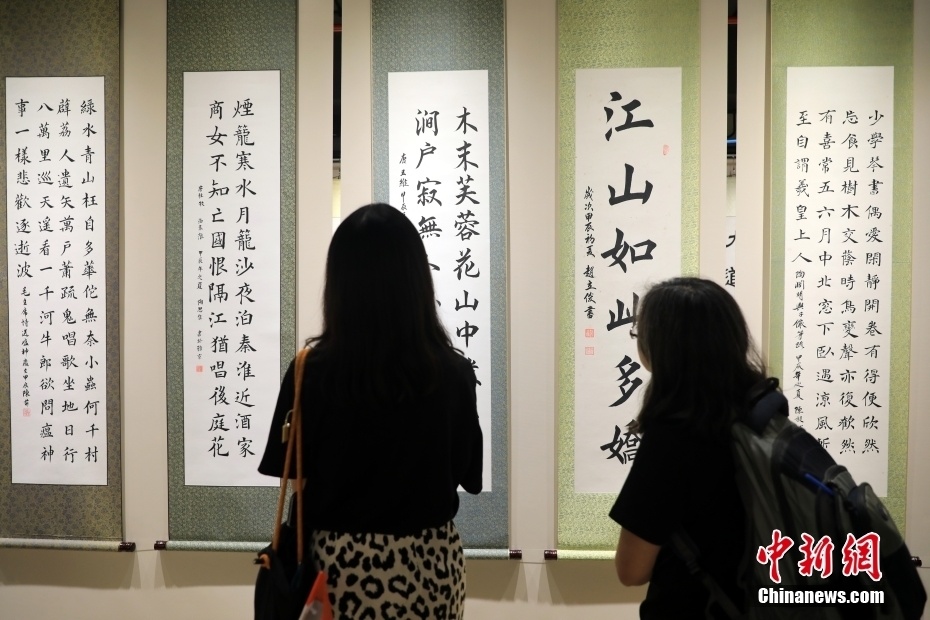 綠水青山枉自多華佗無奈小蟲何千村
薜荔人遺矢萬戶蕭疏鬼唱歌坐地日行
八萬里巡天遥看一千河牛郎欲問瘟神
事一樣悲歡逐逝波
毛主席詩送瘟神
煙籠寒水月籠沙夜泊秦淮近酒家
商女不知亡國恨隔江猶唱後庭花
唐杜牧 泊秦淮 甲辰年之夏
木末芙蓉花山中
澗户寂無
唐王維
江山如此多嬌
歲次甲辰初夏 趙立俊書
少學琴書偶愛閑靜開卷有得便欣然
忘食見樹木交蔭時鳥變聲亦復歡然
有喜常五六月中北窓下臥遇涼風暫
至自謂羲皇上人
中新网
Chinanews.com